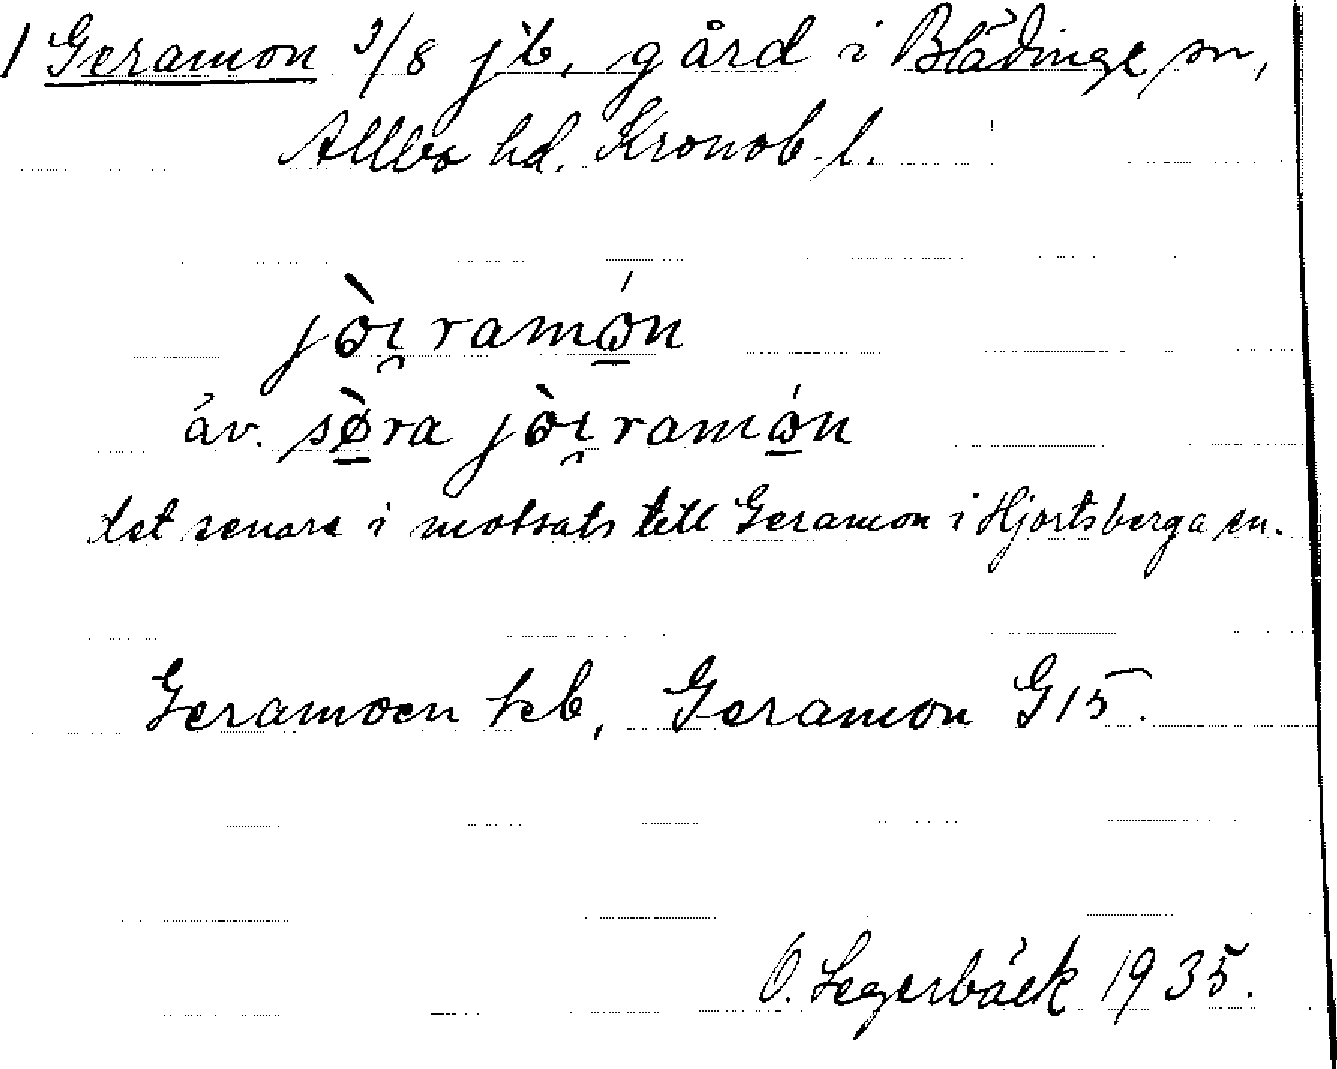 1 Geramon 3/8 jb, gård i Blädinge sn,
Allbo hd. Kronob. l.
jòi̯ramón
äv. sø̀ra jòi̯ramón
det senare i motsats till Geramon i Hjortsberga sn.
Geramoen kb, Geramon G15.
O. Segerbäck 1935.